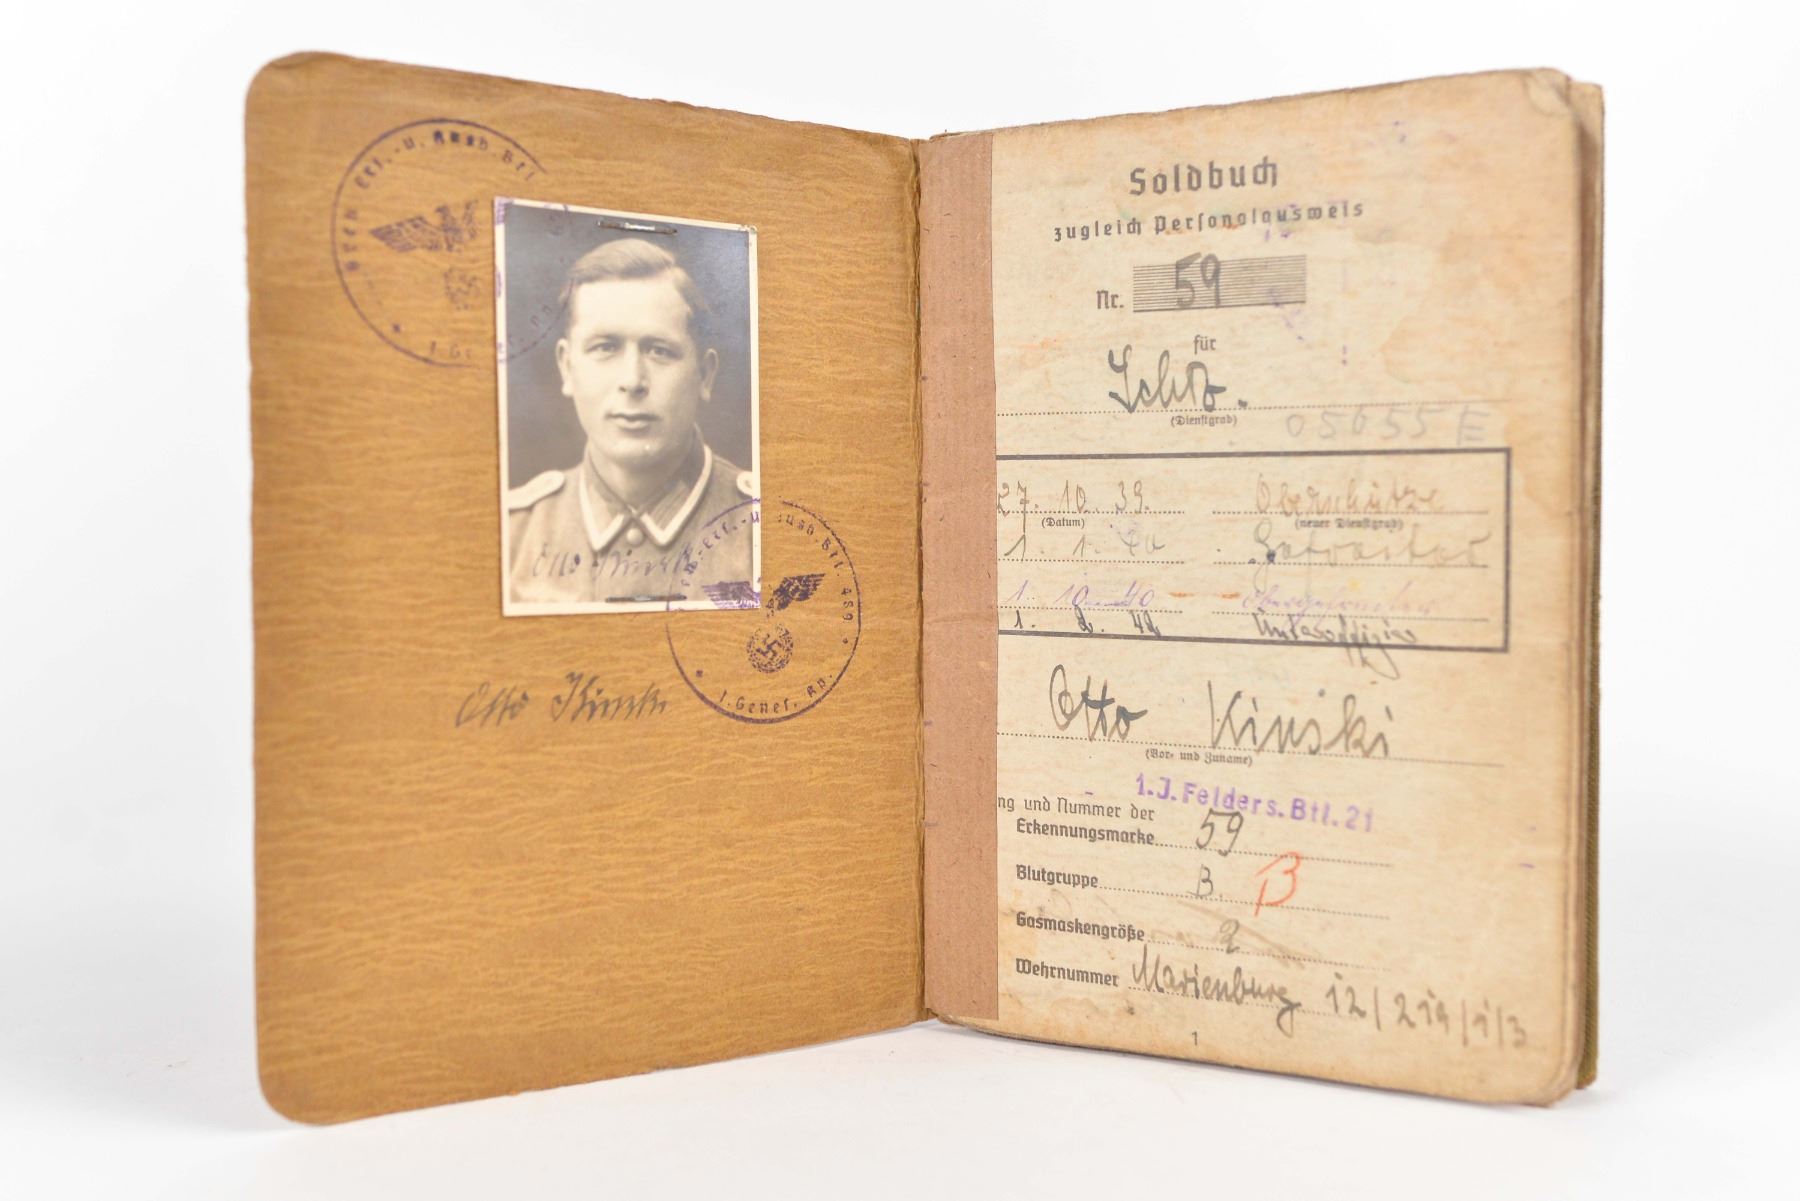 Gren. Ers.-u. Ausb. Btl.
1. Genes. Kp.
Otto Kinski
Ers.-u. Ausb. Btl. 489
1. Genes. Kp.
Otto Kinski
Soldbuch
zugleich Personalausweis
Nr. 59
für
Schtz.
(Dienstgrad)
05655 E
27. 10. 39. Oberschütze
(Datum) (neuer Dienstgrad)
1. 1. 40 Gefreiter
1. 10. 40 Obergefreiter
1. 2. 42 Unteroffizier
Otto Kinski
(Vor- und Zuname)
1.J.Felders.Btl.21
ng und Nummer der
Erkennungsmarke 59
Blutgruppe B. B
Gasmaskengröße 2
Wehrnummer Marienburg 12/219/1/3
1